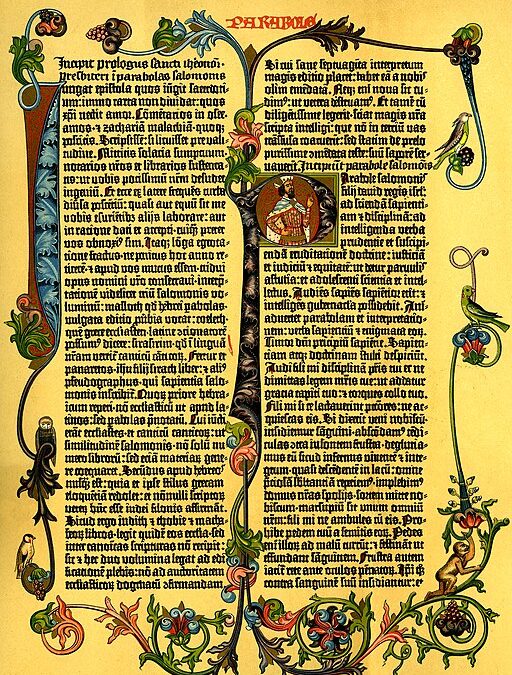 PARABOLE
Incipit prologus sancti iheronimi
presbiteri in parabolas salomonis
Iungat epistola quos iungit sacerdo-
tium: immo carta non dividat: quos
xpi nectit amor. Cōmētarios in osee-
amos-⁊ zachariā malachiā-quoq;
poscitis. Scripsissē: si licuisset pre vali-
tudine. Mittitis solacia sumptuum-
notarios nr̄os et librarios sustenta-
tis: ut vobis potissimū nr̄m desudet
ingeniū. Et ecce ex latere frequēs turba
diūsa poscētiū: quasi aut equū sit me
vobis esuriētibus alijs laborare: aut
in ratione dati et accepti-cuiq̄ preter
vos obnoxi⁹ sim. Itaq; lōga egrota-
tione fractus-ne penitus hoc anno re-
ticerē-⁊ apud vos mutus essem-tridui
opus nomini vr̄o consecraui-interp̄-
tationē videlicet triū salomonis vo-
luminū: masloth q̄d hebrei pabolas-
vulgata editio pūbia vocat: coeleth-
quē grece ecclesiastē-latine ꝯcionatorē
possum⁹ dicere: sirasirim-qd̓ ī linguā
nr̄am vertit̄ canticū cāticoꝝ. Fertur et
panaretos-ihū filij sirach liber: ⁊ ali⁹
pseudographus-qui sapientia salo-
monis inscribit̄. Quoꝝ priore hebra-
icum reperi-nō ecclīasticū ut apud la-
tinos: sed pabolas p̄notatū. Cui iūcti
erāt ecclīastes-et canticū canticoꝝ: ut
similitudinē salomonis-nō solū nu-
mero librorū: sed etiā materiaꝝ gene-
re coequaret. Secūdus apud hebreos
nusq̄ est: quia et ipse stilus grecam
eloquētiā redolet: et nōnulli scriptoꝝ
veteꝝ hūc esse iudei filonis affirmāt.
Sicut ergo iudith ⁊ thobie ⁊ macha-
beoꝝ libros-legit quidē eos ecclīa-sed
inter canonicas scripturas nō recipit:
sic ⁊ hec duo volumina legat ad edi-
ficationē plebis: nō ad auctoritatem
ecclīasticoꝝ dogmatū ꝯfirmandam.
Si cui sane septuaginta interpretum
magis editio placet: habet eā a nobis
olim emēdatā. Neq; em̄ noua sic cu-
dim⁹: ut vetera destruam⁹. Et tamē cū
diligētissime legerit-sciat magis nr̄a
scripta intelligi: que nō in terciū vas
trāsfusa coacuerīt: sed statim de prelo
purissime ꝯmēdata teste: suū saporē ser-
uauerīt. Incipiūt parabole salomōis
Parabole salomonis
filij dauid regis isrl̄:
ad sciendā sapienti-
am ⁊ disciplinā: ad
intelligenda verba
prudentie et suscipi-
endā eruditionē doctrine: iusticiā
et iudiciū ⁊ equitatē: ut detur paruulis
astutia: et adolescenti sciencia et intel-
lectus. Audiēs sapiēs sapiētior erit: ⁊
intelligēs gubernacla possidebit. Ani-
aduertet parabolam et interpretatio-
nem: verba sapientiū ⁊ enigmata eoꝝ.
Timor dn̄i principiū sapiētie. Sapien-
tiam atq; doctrinam stulti despiciūt.
Audi fili mi disciplinā pr̄is tui et ne
dimittas legem mr̄is tue: ut addatur
gracia capiti tuo: ⁊ torques collo tuo.
Fili mi si te lactauerint pctōres: ne ac-
quiescas eis. Si dixerīt veni nobiscū-
insidiemur sāguini-abscōdam⁹ tēdi-
culas ɔtra insontem frustra-deglucia-
mus eū sicud infernus viuentē ⁊ inte-
grum-quasi descēdentē in lacū: omnē
p̄ciosā s̄bstantiā reperiem⁹-implebim⁹
domus nr̄as spolijs-sortem mitte no-
biscum-marsupiū sit unum omniū
nr̄m: fili mi ne ambules cū eis. Pro-
hibe pedem tuū a semitis eoꝝ. Pedes
em̄ illoꝝ ad malū currūt: ⁊ festināt ut
effundant sāguinem. Frustra autem
iacit̄ rete ante oculos pēnatoꝝ. Ip̄i q̄;
contra sanguinē suū insidiantur: et